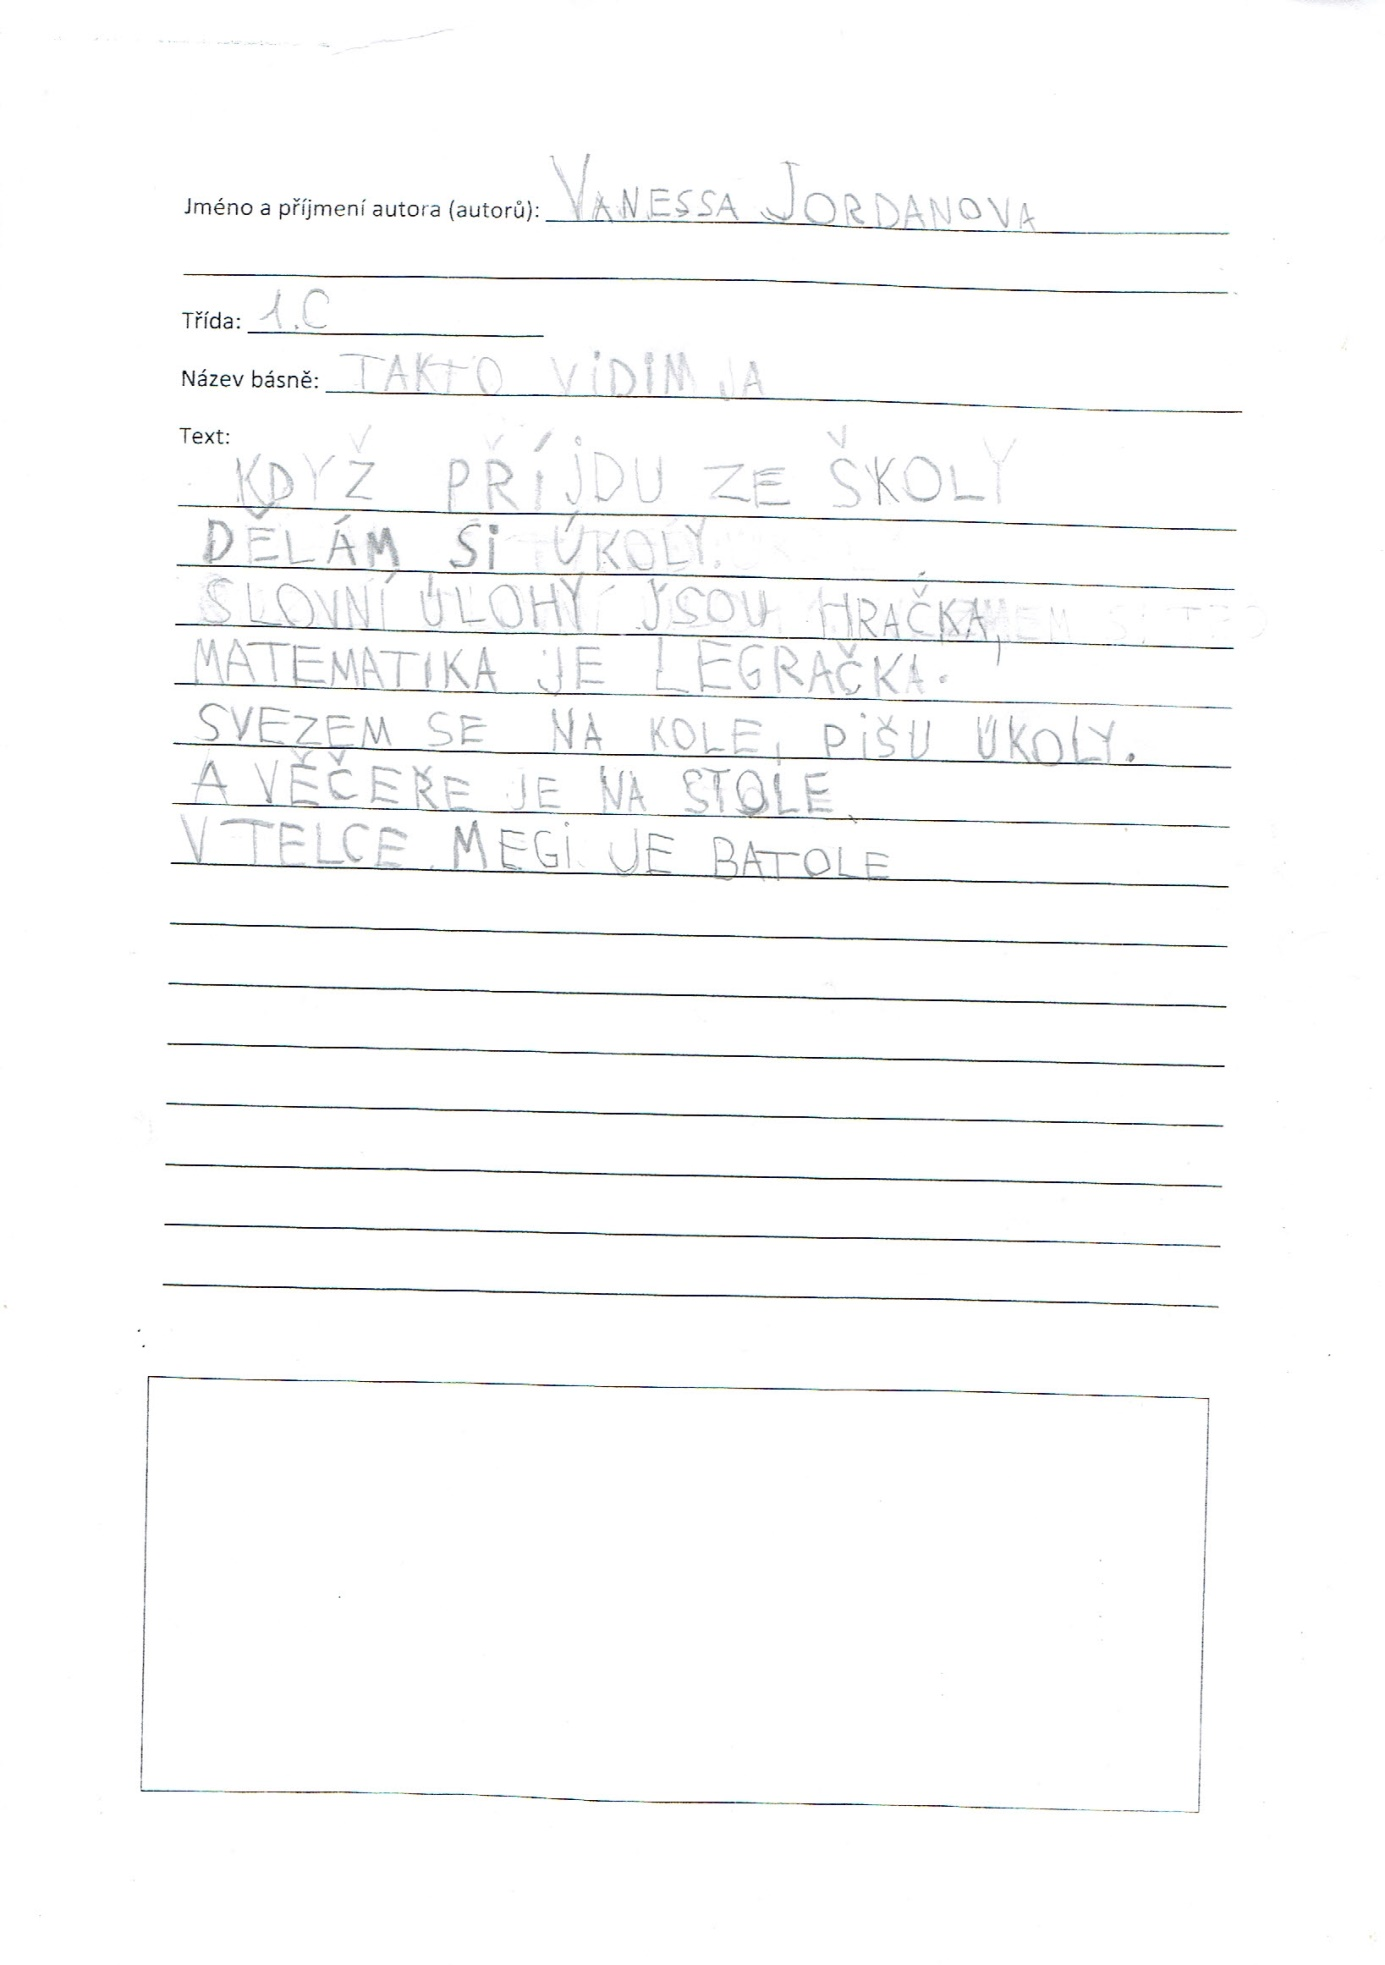 Jméno a příjmení autora (autorů): VANESSA JORDANOVA
Třída: 1.C
Název básně: TAKTO VIDIM JA
Text:
KDYŽ PŘÍJDU ZE ŠKOLY
DĚLÁM SI ÚKOLY.
SLOVNÍ ÚLOHY JSOU HRAČKA,
MATEMATIKA JE LEGRAČKA.
SVEZEM SE NA KOLE, PIŠU UKOLY.
A VĚČEŘE JE NA STOLE
V TELCE MEGI JE BATOLE